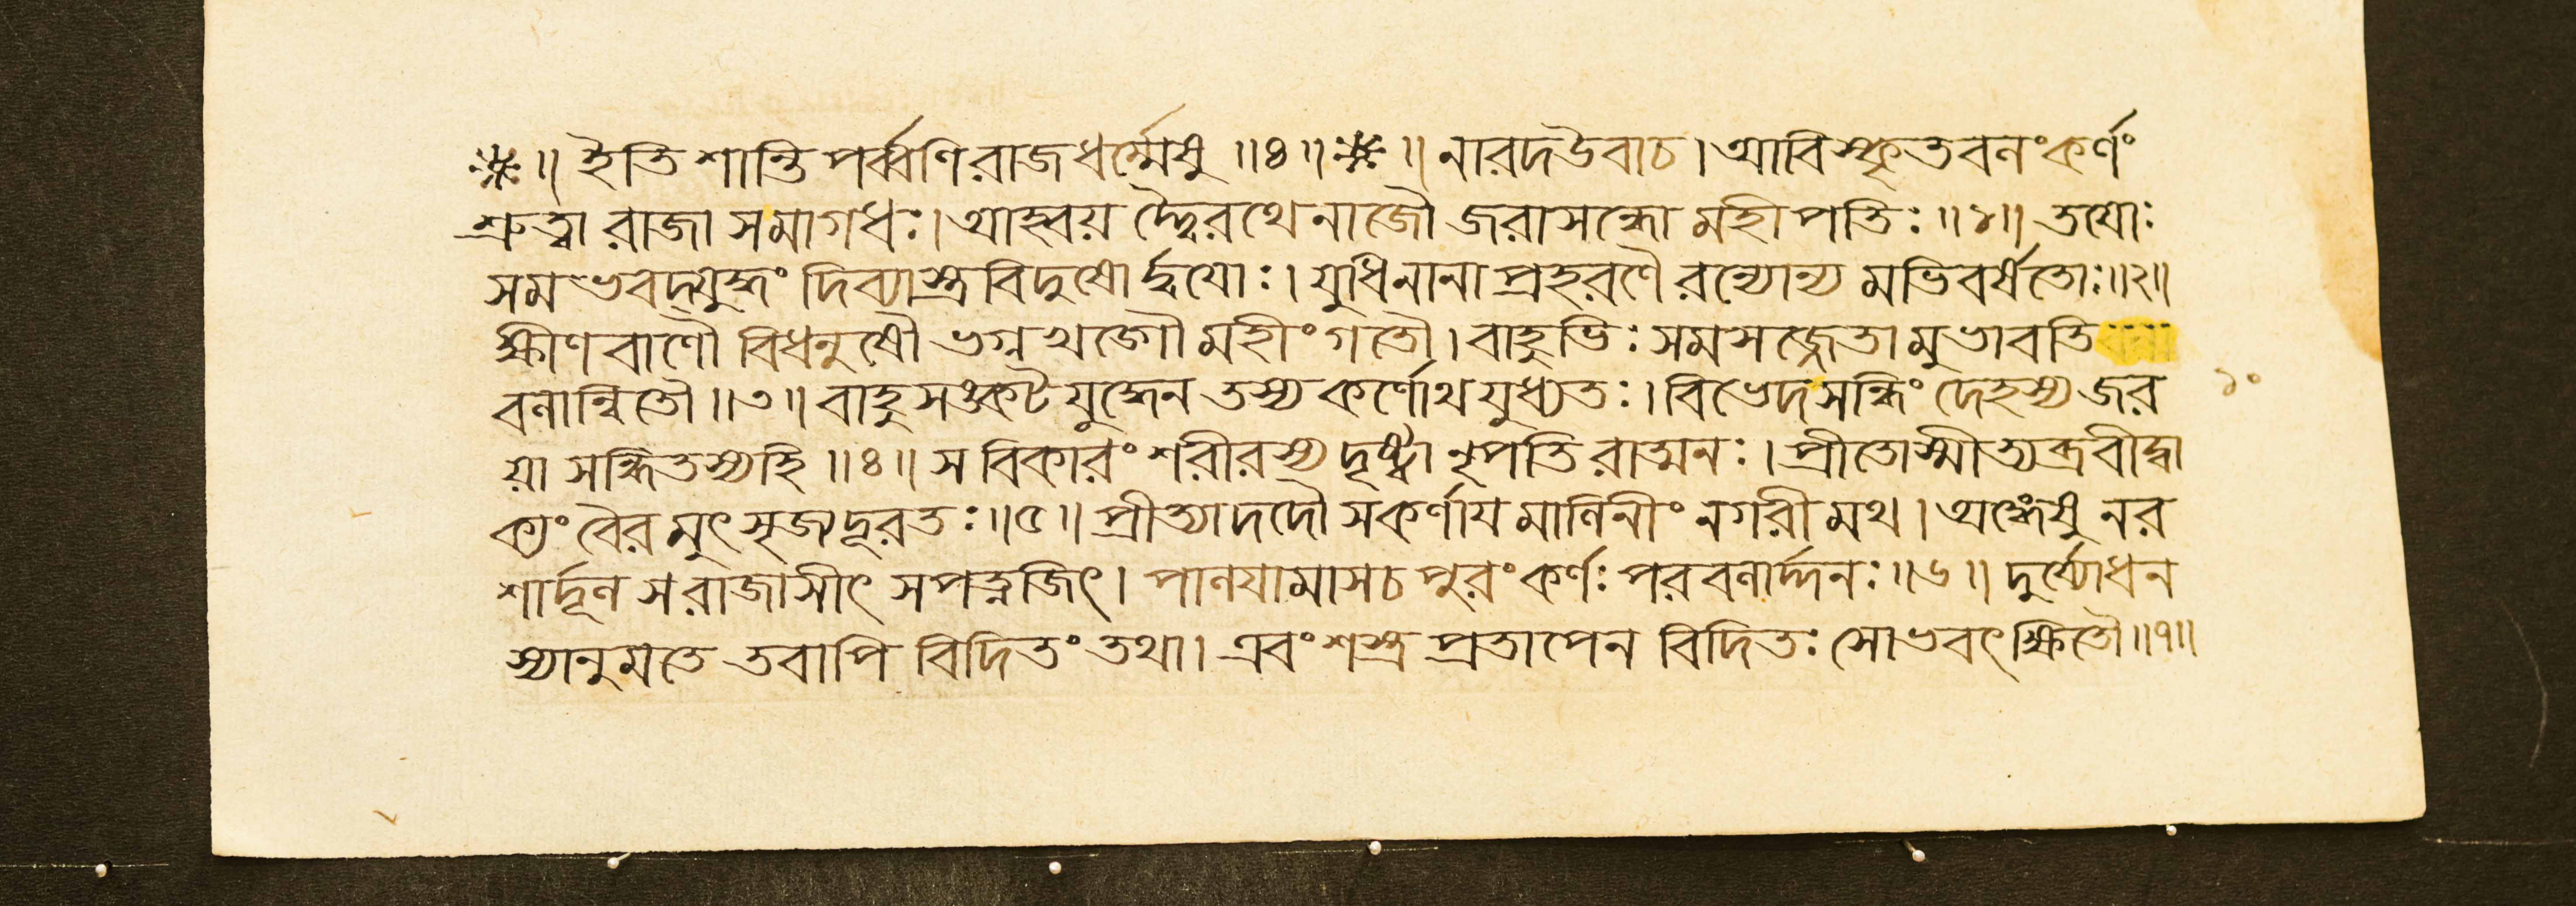 ॥ ইতি শান্তি পর্ব্বণি রাজধর্ম্মেষু ॥৪॥ ॥ নারদ উবাচ। আবিস্কৃতবলং কর্ণং
শ্রুত্বা রাজা স মাগধঃ। আহ্বয় দ্দ্বৈরথেনাজৌ জরাসন্ধো মহীপতিঃ ॥১॥ তয়োঃ
সমভবদ্যুদ্ধং দিব্যাস্ত্রবিদুষো র্দ্দ্বয়োঃ। যুধি নানা প্রহরণৈ রন্যোন্য মভিবর্ষতোঃ ॥২॥
ক্ষীণবাণৌ বিধনুষৌ ভগ্নখড়্গৌ মহীং গতৌ। বাহুভিঃ সমসজ্জেতা মুভাবতি
বলান্বিতৌ ॥৩॥ বাহুসঙ্কটযুদ্ধেন তস্য কর্ণোথ যুধ্যতঃ। বিভেদ সন্ধিং দেহস্য জর ১০
য়া সন্ধিতস্য হি ॥৪॥ স বিকারং শরীরস্য দৃষ্ট্বা নৃপতি রাত্মনঃ। প্রীতোস্মীত্যব্রবীদ্বা
ক্যং বৈর মুৎসৃজ্য দূরতঃ ॥৫॥ প্রীত্যা দদৌ স কর্ণায় মালিনীং নগরী মথ। অঙ্গেষু নর
শার্দ্দূল স রাজাসীৎ সপত্নজিৎ। পালয়ামাস চ পুরং কর্ণঃ পরবলার্দ্দনঃ ॥৬॥ দুর্য্যোধন
স্যানুমতে তবাপি বিদিতং তথা। এবং শস্ত্র প্রতাপেন বিদিতঃ সোভবৎ ক্ষিতৌ ॥৭॥